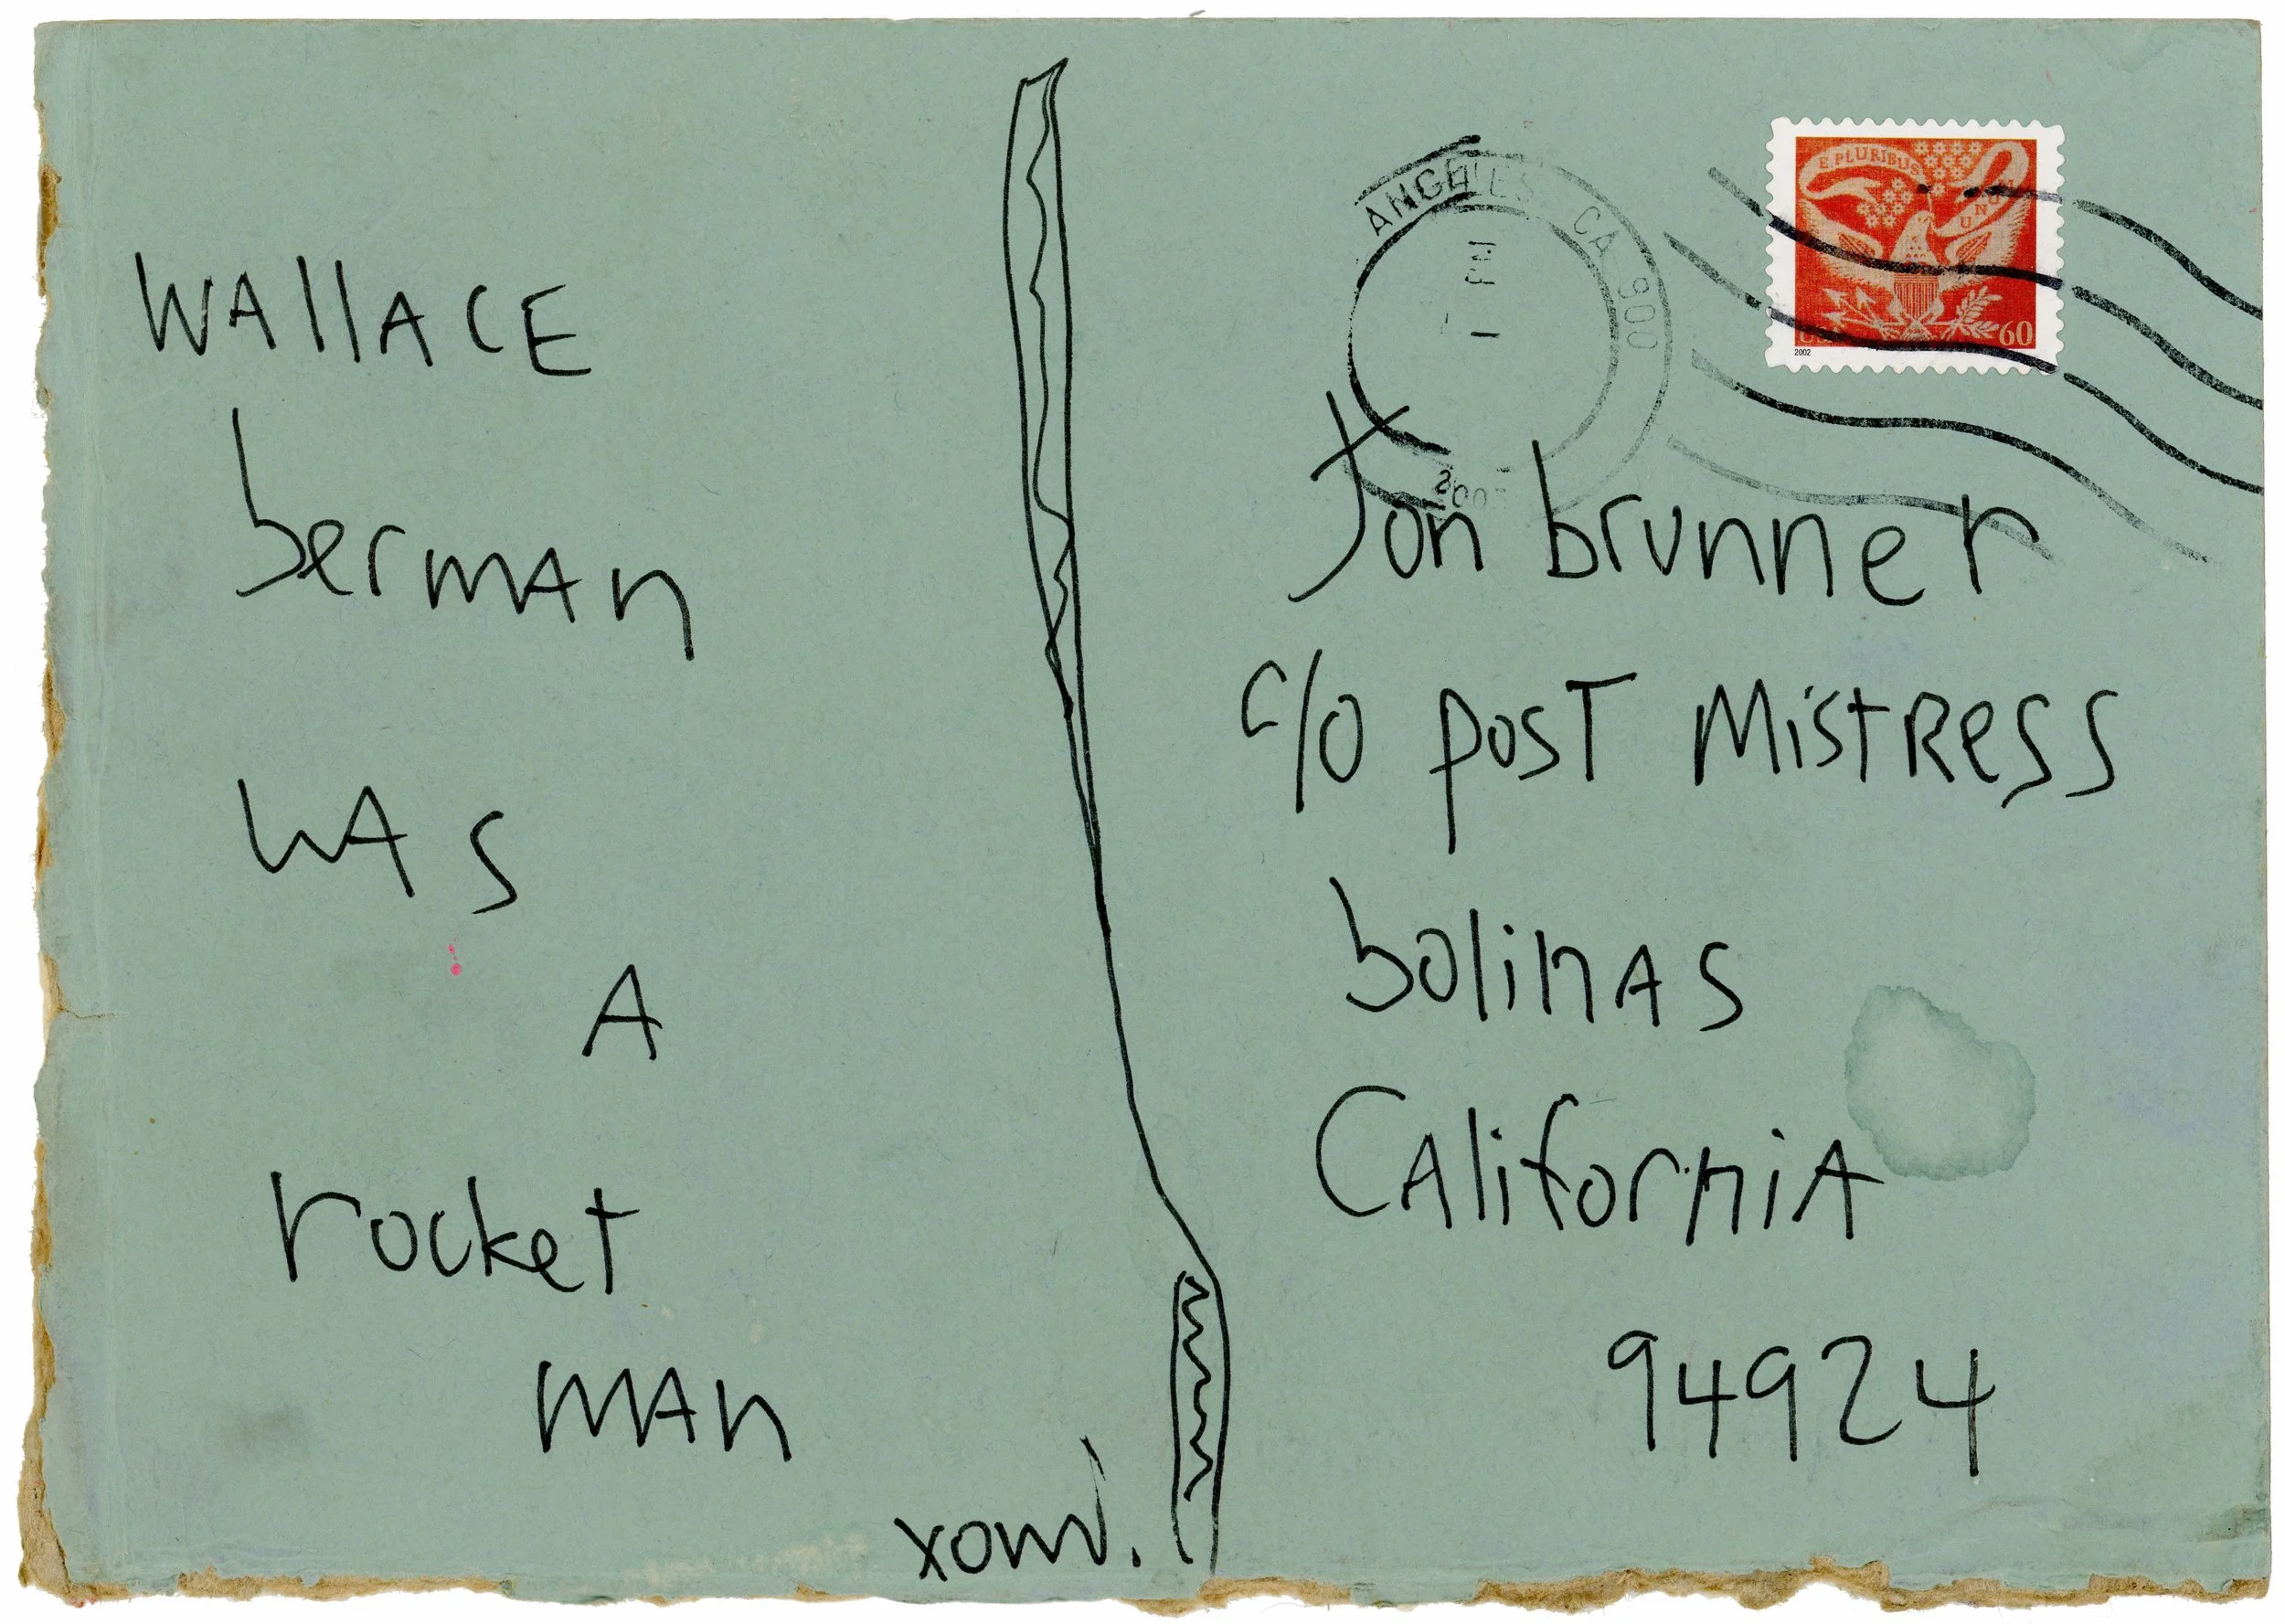 WALLACE
berman
WAS
A
rocket
MAn
Jon brunner
c/o post Mistress
bolinas
California
94924
ANGELES CA 900
PM
E PLURIBUS
UNUM
60
2002